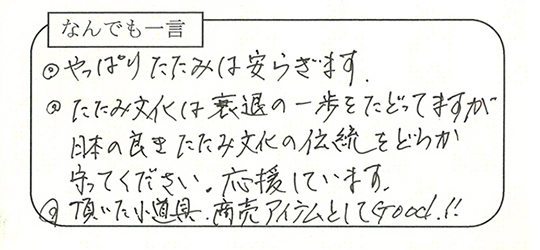 なんでも一言
◎やっぱりたたみは安らぎます.
◎たたみ文化は衰退の一歩をたどってますが
日本の良きたたみ文化の伝統をどうか
守ってください。応援しています.
◎頂いた小道具.商売アイテムとしてGood.!!